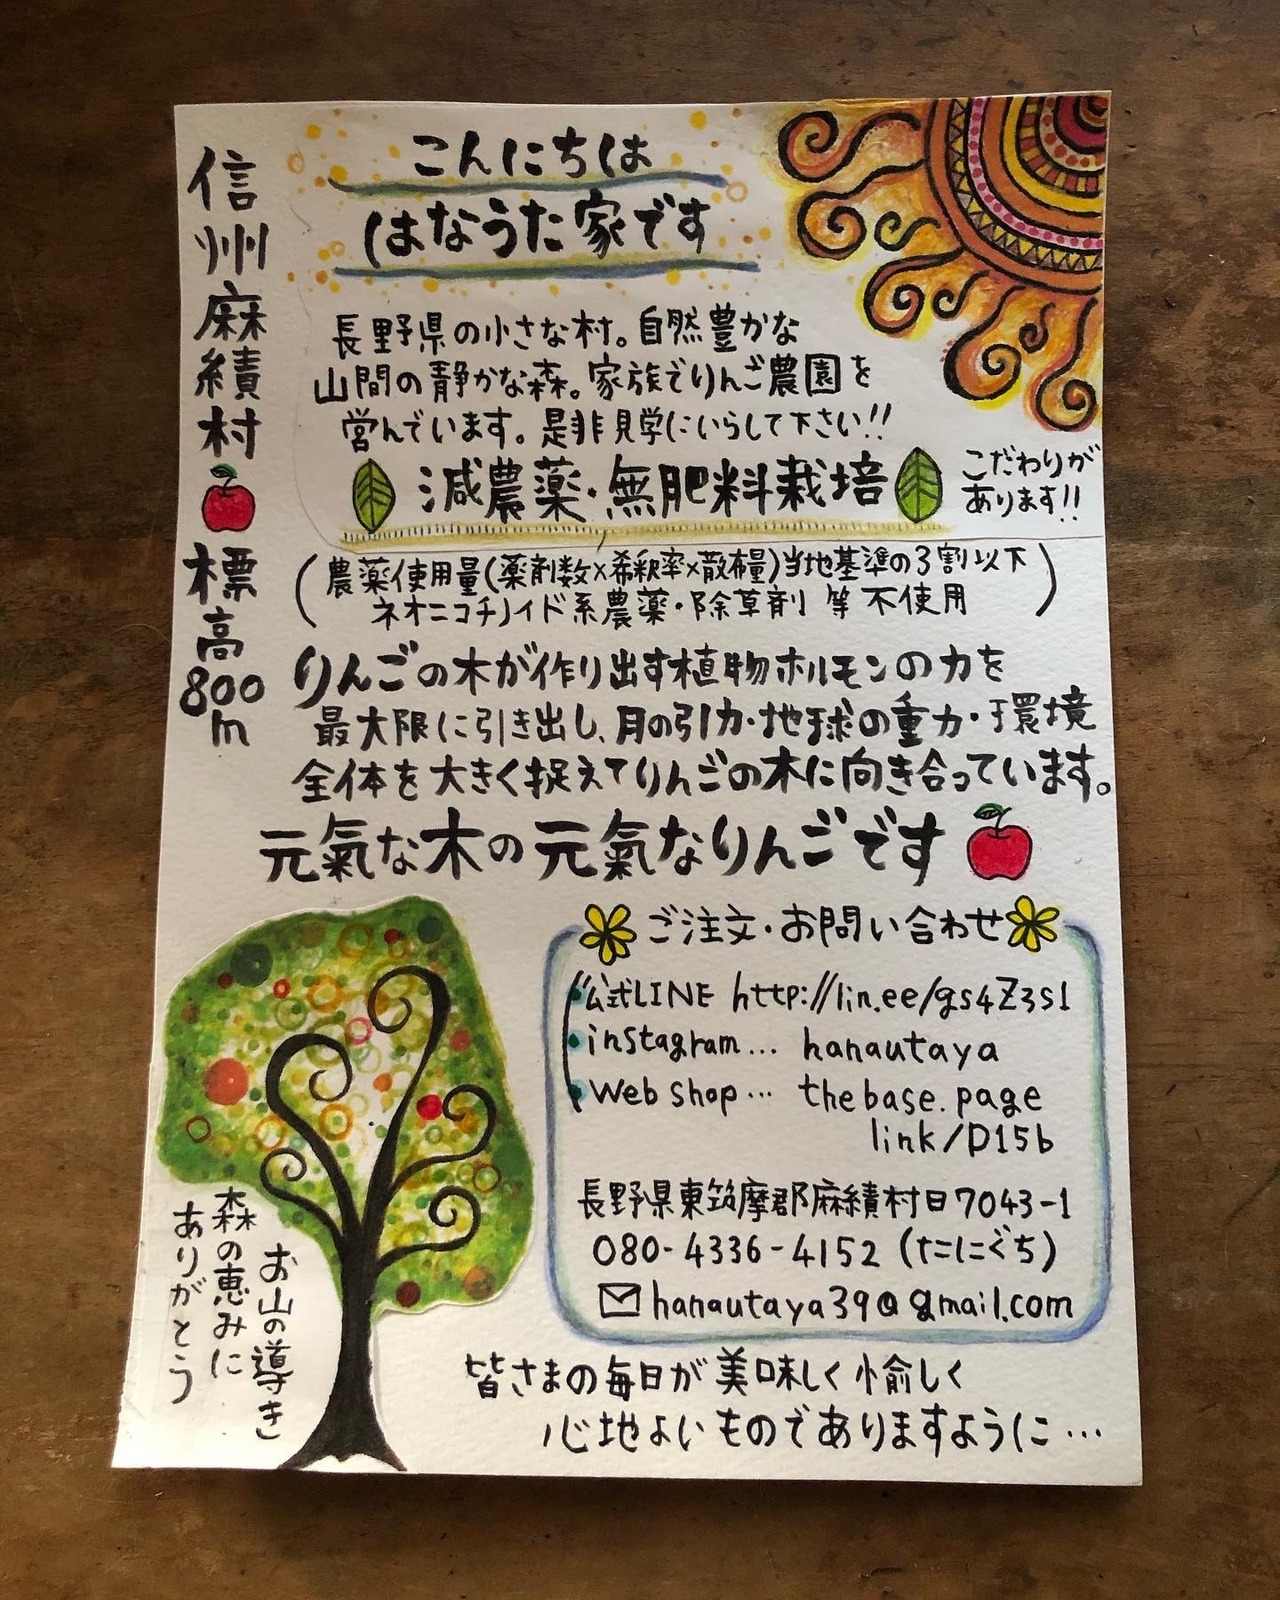 信州麻績村
標高800m
こんにちは
はなうた家です
長野県の小さな村。自然豊かな
山間の静かな森。家族でりんご農園を
営んでいます。是非見学にいらして下さい!!
減農薬・無肥料栽培
こだわりが
あります!!
(農薬使用量(薬剤数×希釈率×散布量)当地基準の3割以下
ネオニコチノイド系農薬・除草剤 等 不使用)
りんごの木が作り出す植物ホルモンの力を
最大限に引き出し、月の引力・地球の重力・環境
全体を大きく捉えてりんごの木に向き合っています。
元氣な木の元氣なりんごです
ご注文・お問い合わせ
公式LINE http://lin.ee/gs4Z3s1
instagram... hanautaya
Web shop... thebase.page
link/D15b
長野県東筑摩郡麻績村日7043-1
080-4336-4152 (たにぐち)
hanautaya39@gmail.com
お山の導き
森の恵みに
ありがとう
皆さまの毎日が美味しく愉しく
心地よいものでありますように…